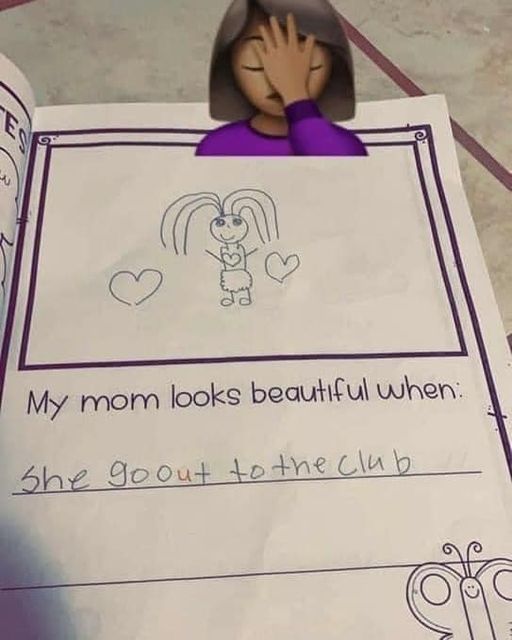 ES
My mom looks beautiful when:
She go out to the club